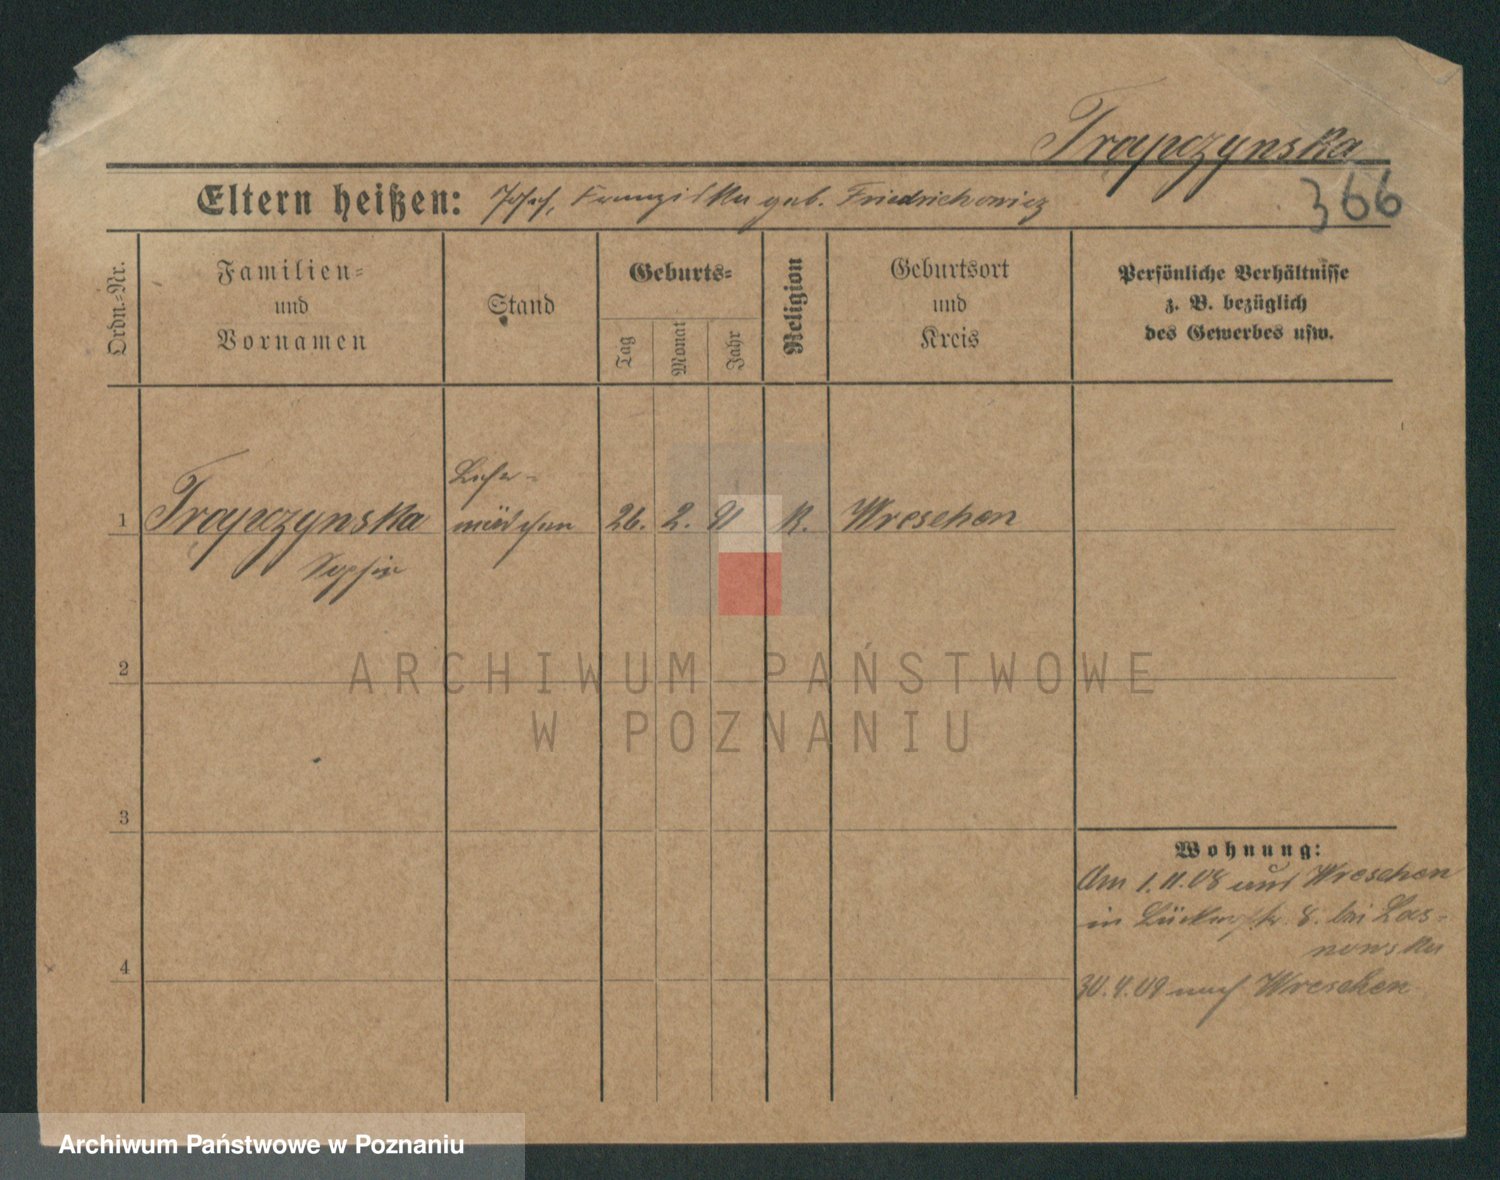 Trąpczynska
Eltern heißen: Josef, Franziska geb. Friedrichowicz
366
Ordn.-Nr.
Familien-
und
Vornamen
Stand
Geburts-
Tag
Monat
Jahr
Religion
Geburtsort
und
Kreis
Persönliche Verhältnisse
z. B. bezüglich
des Gewerbes usw.
Lehr-
1 Trąpczynska mädchen 26. 2. 91 K. Wreschen
Sophie
2
ARCHIWUM PAŃSTWOWE
W POZNANIU
3
Wohnung:
Am 1.11.08 aus Wreschen
in 8. bei Las-
nowska
4
30.4.09 nach Wreschen
Archiwum Państwowe w Poznaniu